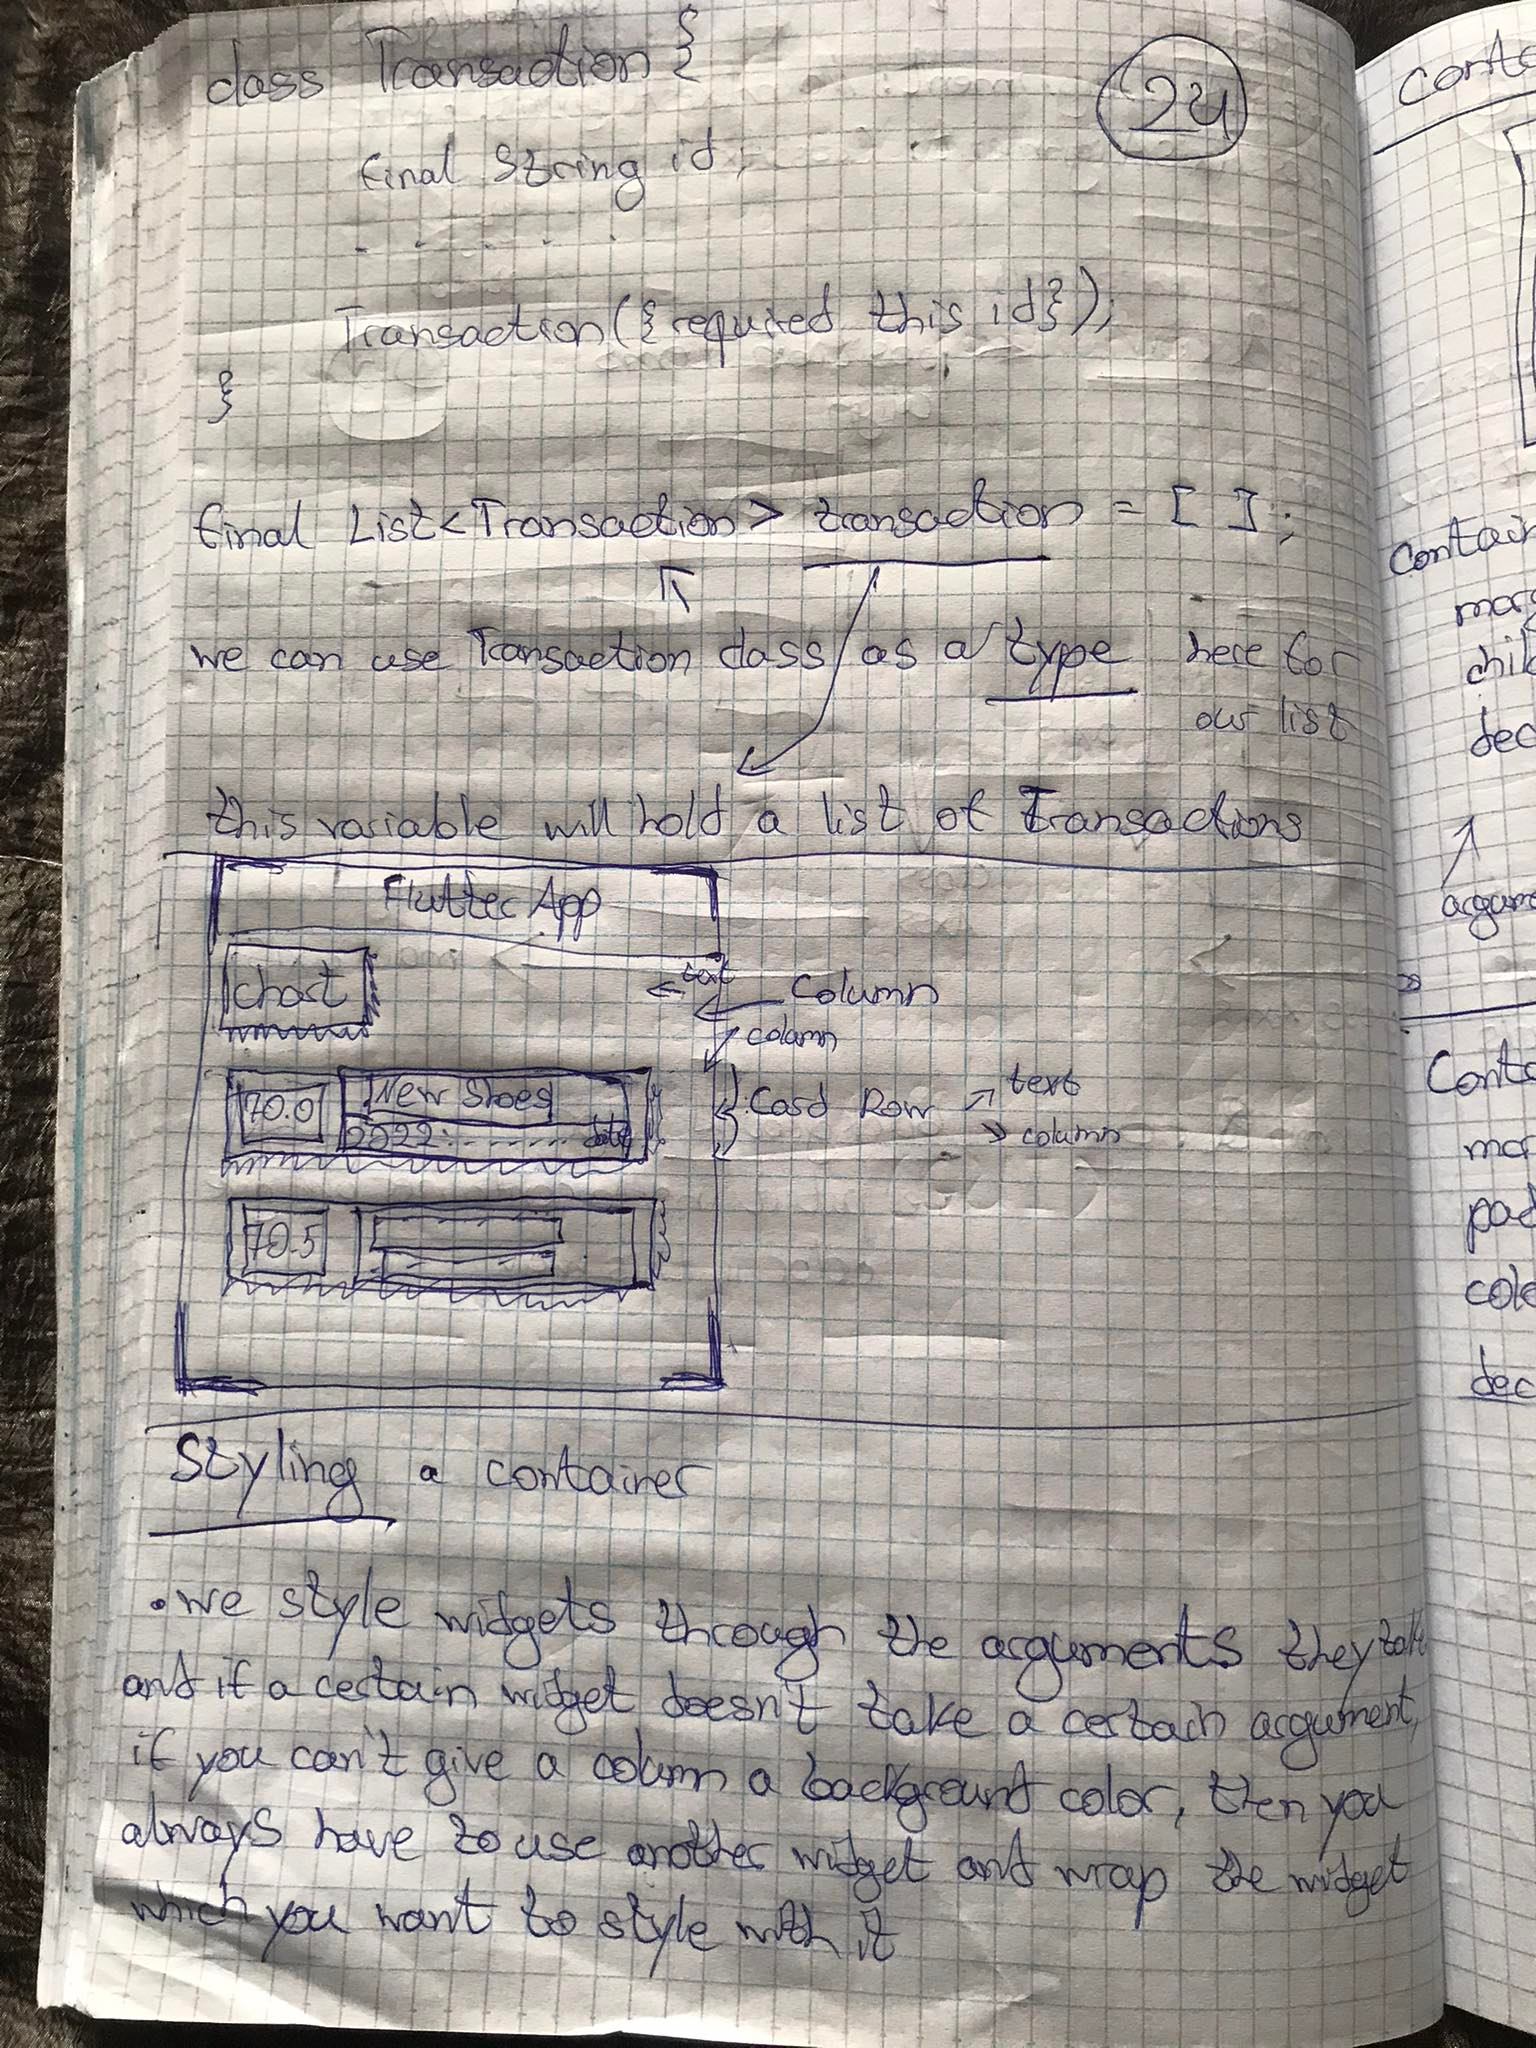 class Transaction {
24
final String id;
. . . . .
Transaction({required this id});
}
final List<Transaction> transaction = [ ];
we can use Transaction class as a type here for
our list
this variable will hold a list of Transactions
Flutter App
chart
text
Column
column
70.0
New Shoes
2022: - - - - - - - date
Card Row
text
column
70.5
Styling a container
• we style widgets through the arguments they take
and if a certain widget doesn't take a certain argument,
if you can't give a column a background color, then you
always have to use another widget and wrap the widget
which you want to style with it
Contain
child
argum
Conta